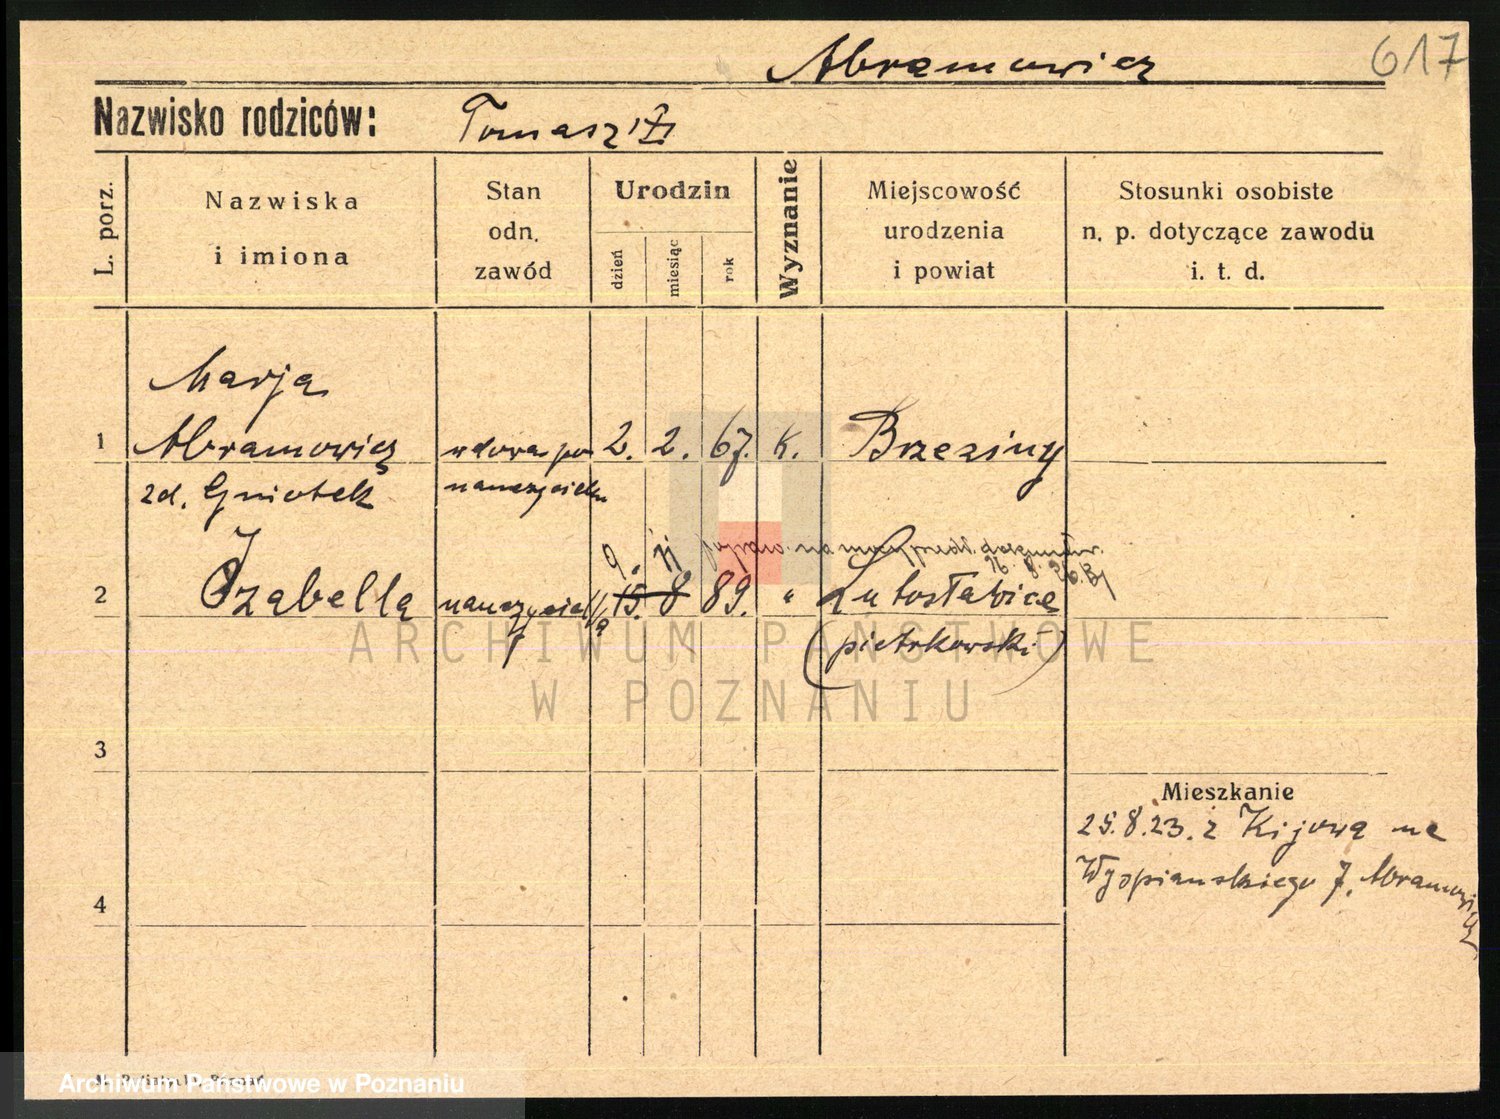 Abramowicz
617
Nazwisko rodziców:
Tomasz i
L. porz.
Nazwiska
i imiona
Stan
odn.
zawód
Urodzin
dzień
miesiąc
rok
Wyznanie
Miejscowość
urodzenia
i powiat
Stosunki osobiste
n. p. dotyczące zawodu
i. t. d.
Marja
1 Abramowicz wdowa po 2. 2. 67. k. Brzeziny
zd. Gniotek nauczycielu
9. na
2 Izabella 15. 8 89. " Lutosławice
(piotrkowski)
3
Mieszkanie
25.8.23. z Kijowa na
Wyspianskiego J. Abramowicz
4
ARCHIWUM PAŃSTWOWE
W POZNANIU
Archiwum Państwowe w Poznaniu